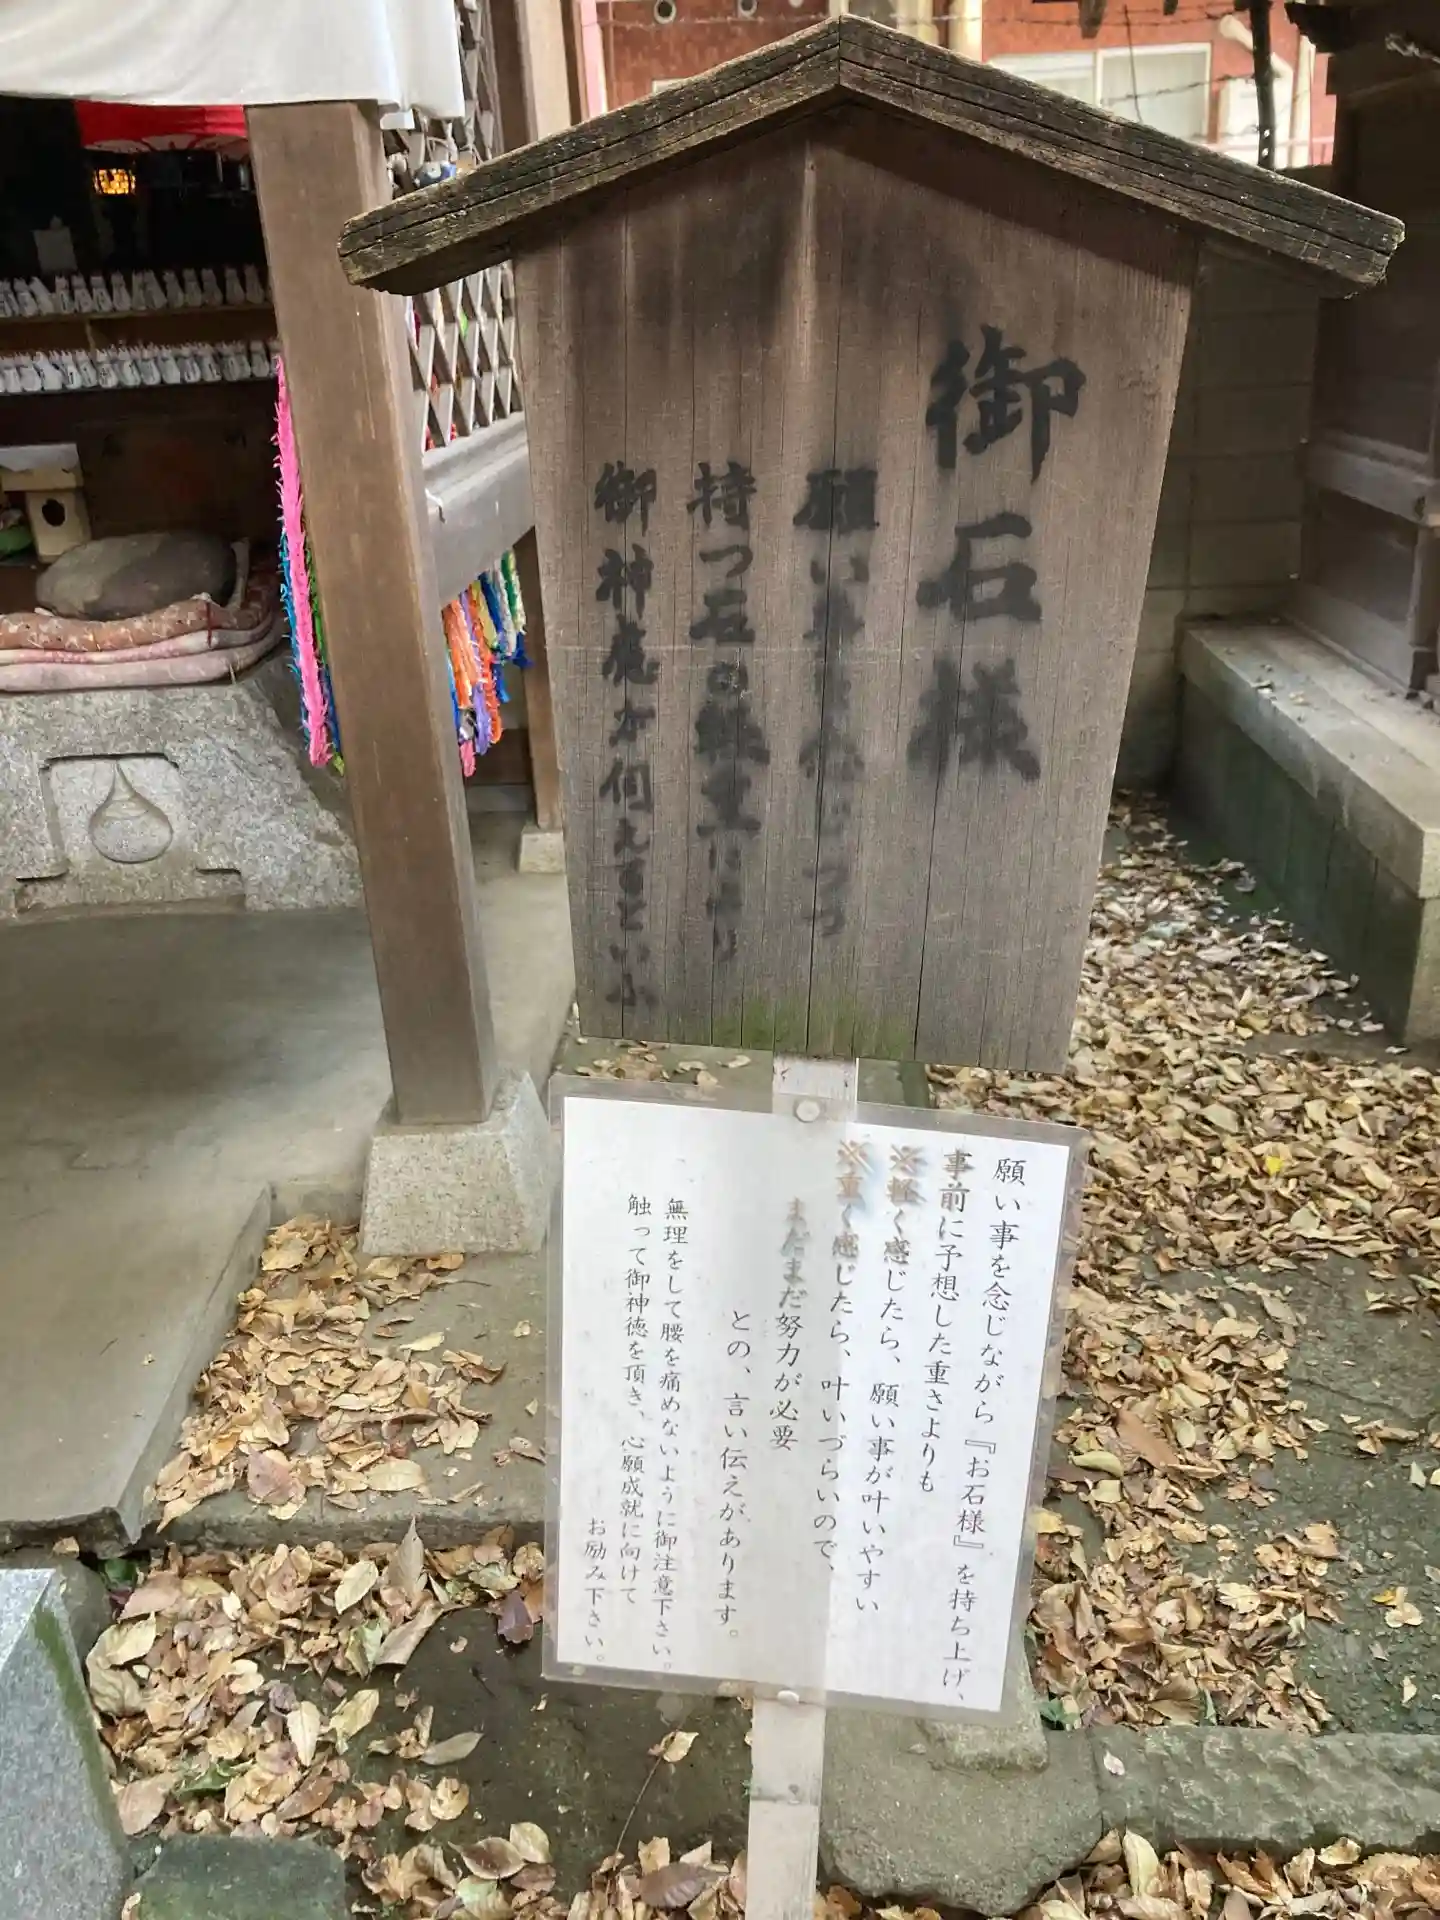 御石様
願い事を念じつつ
持つ石の軽重により
御神慮が伺えるといふ
願い事を念じながら『お石様』を持ち上げ、
事前に予想した重さよりも
※軽く感じたら、願い事が叶いやすい
※重く感じたら、叶いづらいので、
まだまだ努力が必要
との、言い伝えがあります。
無理をして腰を痛めないように御注意下さい。
触って御神徳を頂き、心願成就に向けて
お励み下さい。